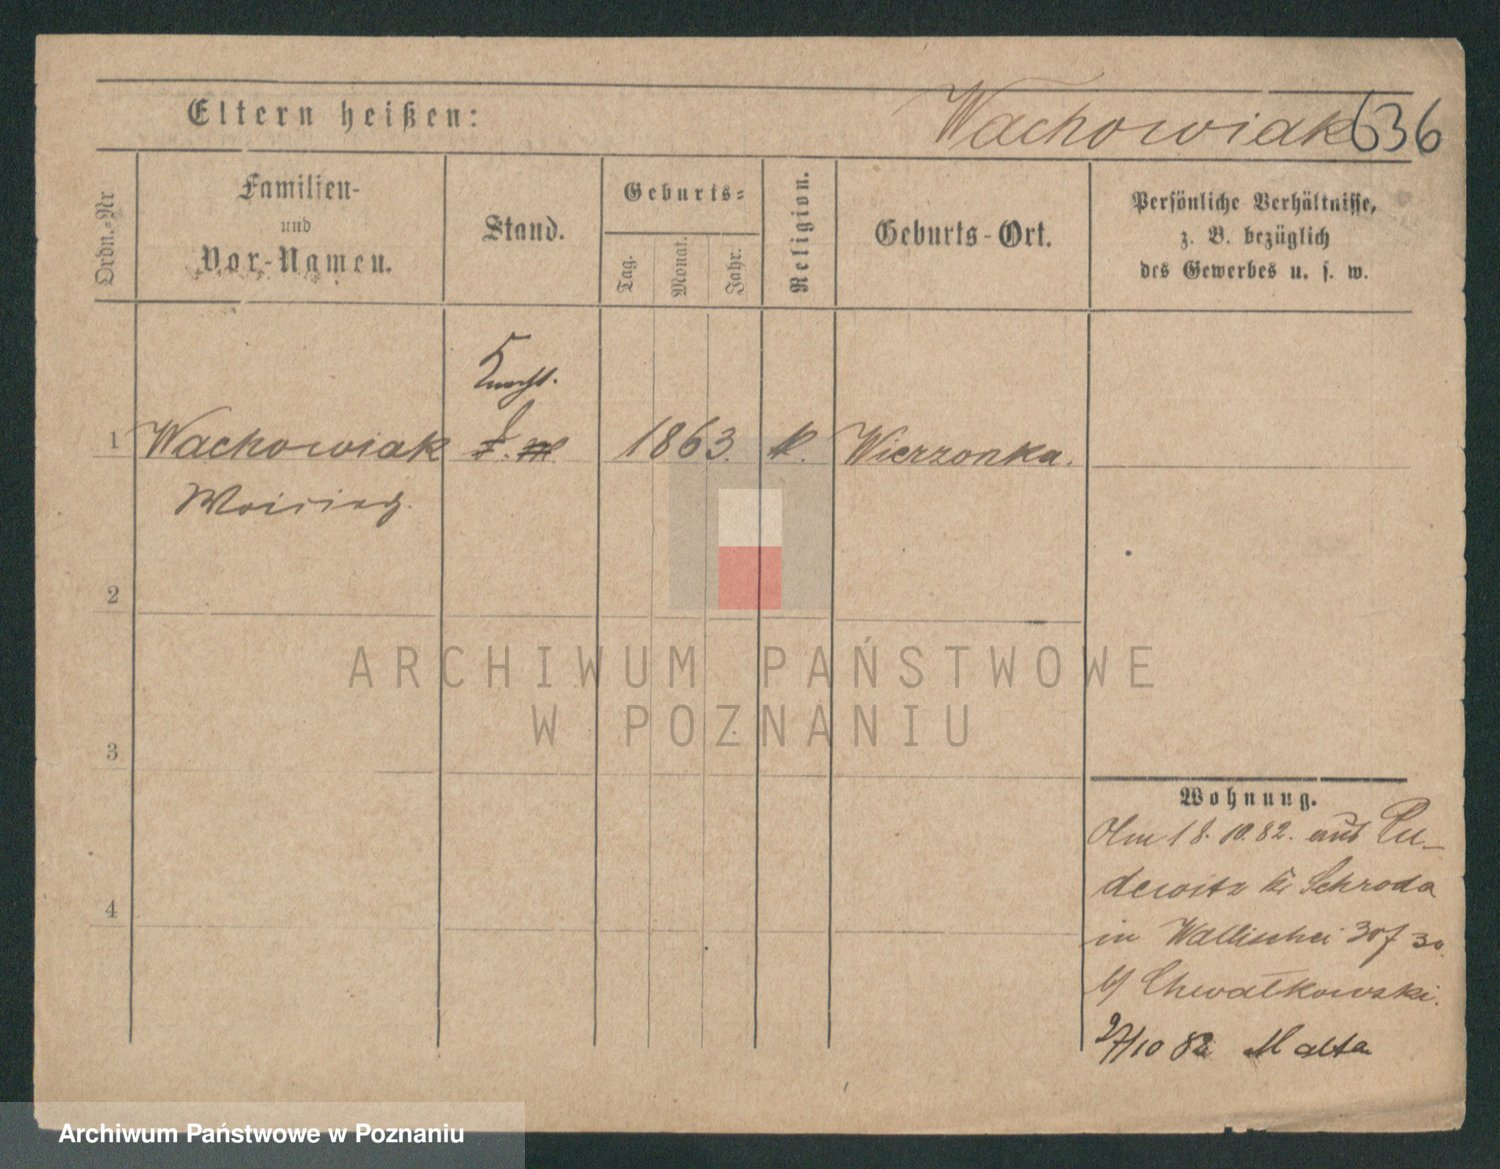 Eltern heißen:
Wachowiak 636
Ordn.-Nr
Familien-
und
Vor-Namen.
Stand.
Geburts-
Tag.
Monat.
Jahr.
Religion.
Geburts-Ort.
Persönliche Verhältnisse,
z. B. bezüglich
des Gewerbes u. s. w.
Knecht.
1 Wachowiak 1863. k. Wierzonka.
2
3
4
Wohnung.
Am 18.10.82. aus Pu-
dewitz Kr Schroda
in Wallischei 30
b/ Chwałkowski.
27/10 82 Malta
ARCHIWUM PAŃSTWOWE
W POZNANIU
Archiwum Państwowe w Poznaniu